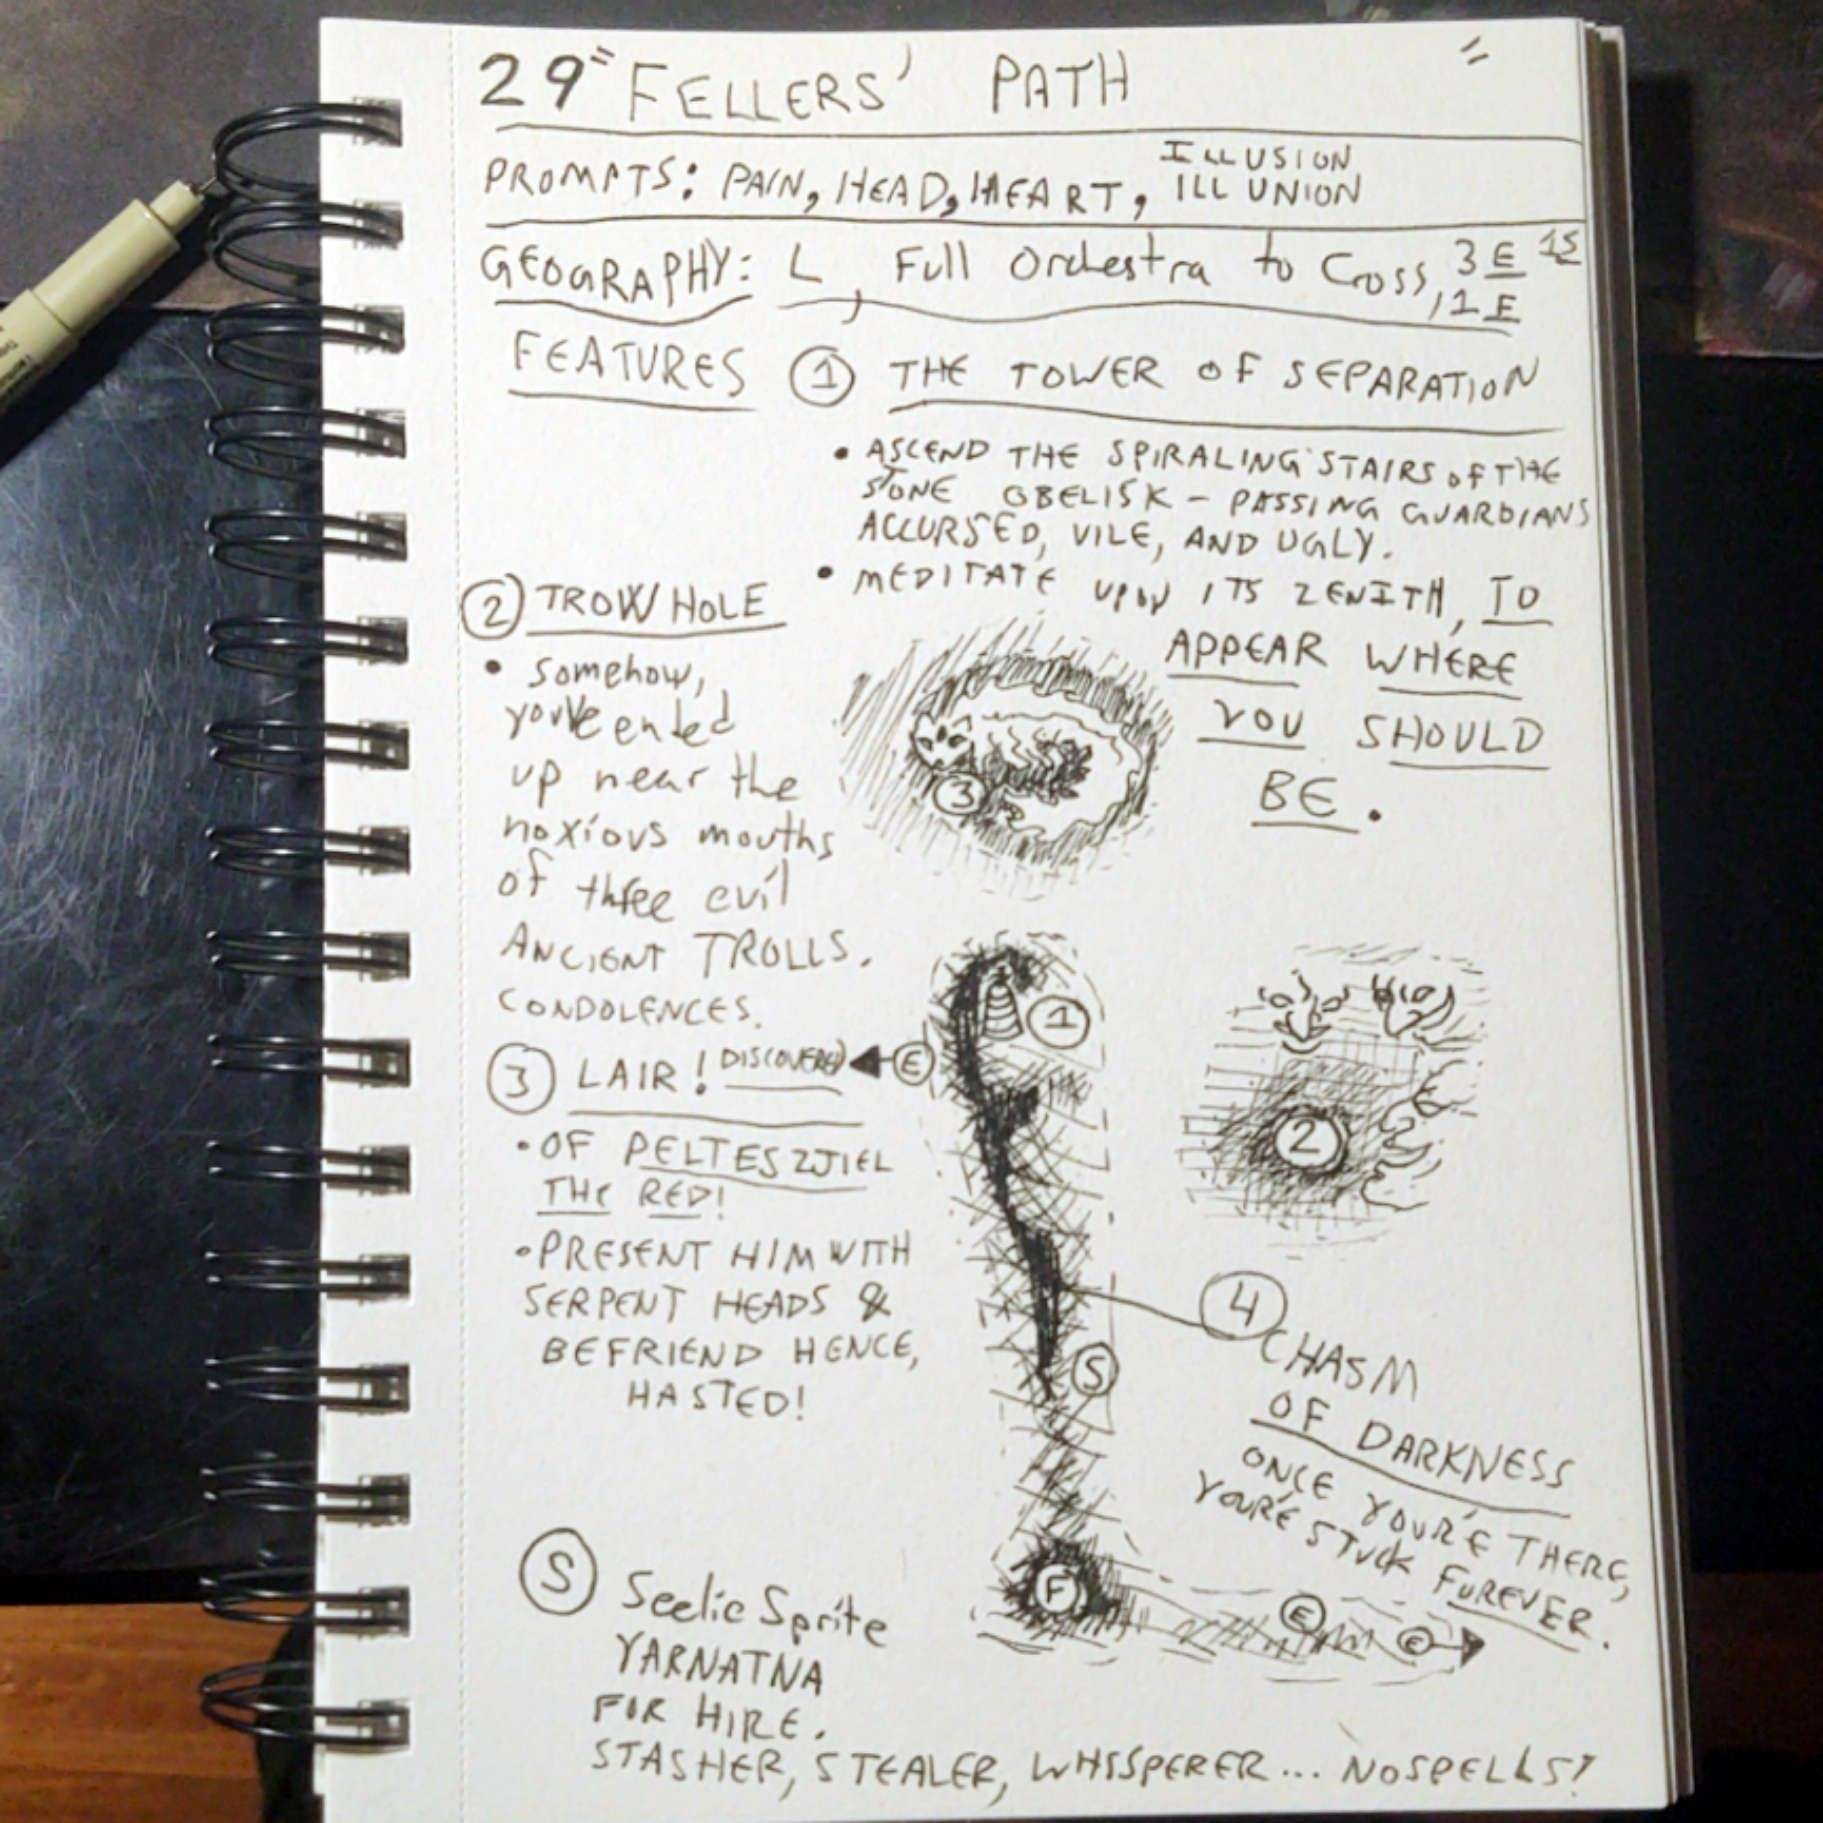 29 "FELLERS' PATH "
PROMPTS: PAIN, HEAD, HEART, ILLUSION
ILLUNION
GEOGRAPHY: L, Full Orchestra to Cross, 3 E 1S
, 1 E
FEATURES ① THE TOWER OF SEPARATION
• ASCEND THE SPIRALING STAIRS OF THE
STONE OBELISK – PASSING GUARDIANS
ACCURSED, VILE, AND UGLY.
• MEDITATE UPON ITS ZENITH, TO
APPEAR WHERE
YOU SHOULD
BE.
② TROW HOLE
• Somehow,
you've ended
up near the
noxious mouths
of three evil
ANCIENT TROLLS.
CONDOLENCES.
3
1
2
③ LAIR! DISCOVERY
E
• OF PELTESZJIEL
THE RED!
• PRESENT HIM WITH
SERPENT HEADS &
BEFRIEND HENCE,
HASTED!
④ CHASM
OF DARKNESS
ONCE YOUR'E THERE,
YOUR'E STUCK FUREVER.
S
F
E
E
Ⓢ Seelie Sprite
YARNATNA
FOR HIRE.
STASHER, STEALER, WHISSPERER... NO SPELLS!